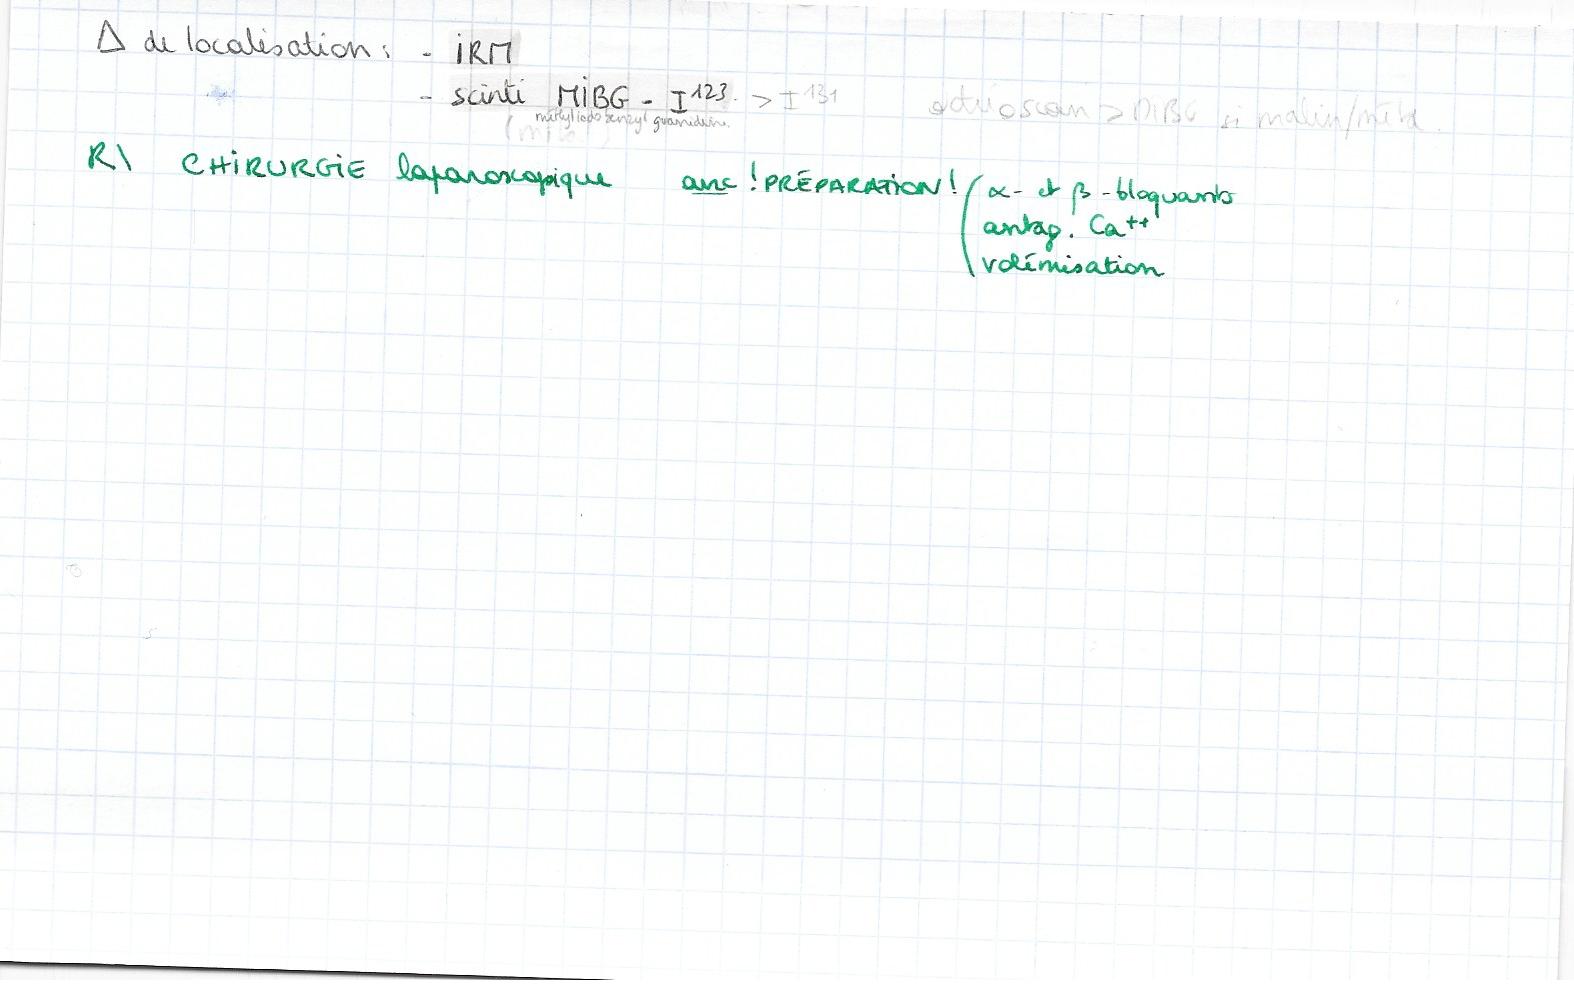 Δ de localisation : - iRM
- scinti MiBG - I¹²³ > I¹³¹ octréoscan > MiBG si malin/méta.
méthyliodobenzyl guanidine.
R\ CHiRURGiE laparoscopique avec ! PRÉPARATiON ! α- et β-bloquants
antag. Ca⁺⁺
volémisation